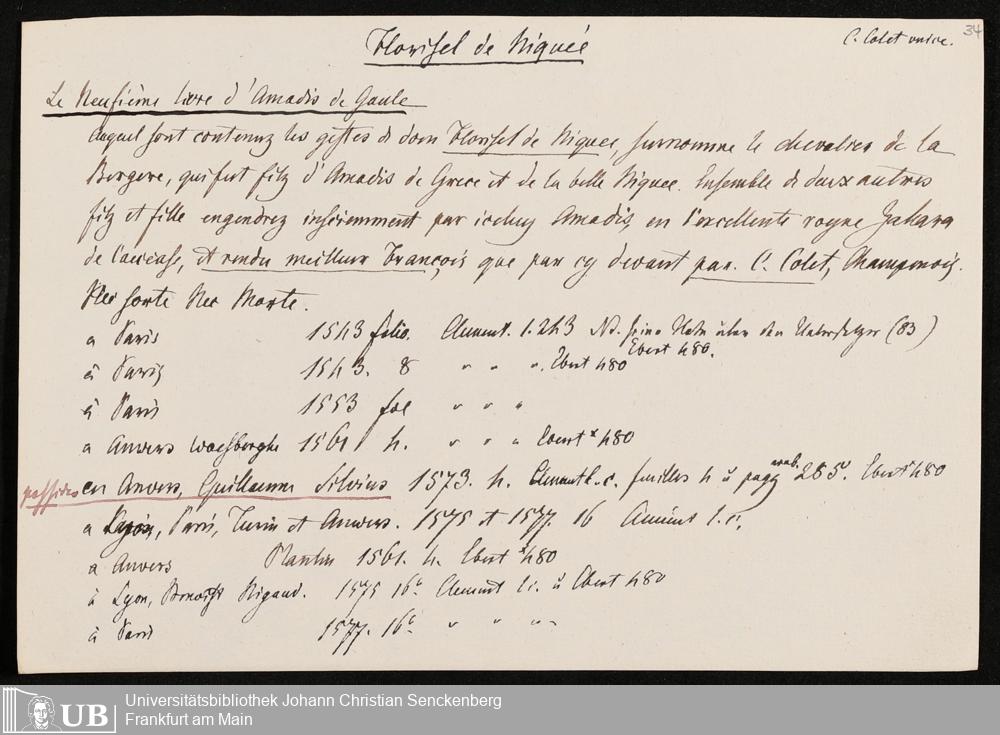 34
Florisel de Niquée
C. Colet
Le Neufième livre d'Amadis de Gaule
Auquel sont contenuz les gestes de dom Florisel de Niquee, surnomme le chevalier de la
Bergere, qui fut filz d'Amadis de Grece et de la belle Niquee. Ensemble de deux autres
filz et fille engendrez par iceluy Amadis, en l'excellente royne Zahara
de Caucase, et rendu meilleur François que par cy devant par. C. Colet, Champenois.
Nec sorte Nec Morte.
a Paris 1543 folio. Clement. 1.243 Nb. seine Note über den Uebersetzer (83)
Ebert 480.
à Paris 1543. 8 " " ". Ebert 480
à Paris 1553 fol " " "
a Anvers Waesberghe 1561 4. " " " Ebert 480
possideo en Anvers, Guillaume Silvius 1573. 4. Clement l. c. feuilles 4 u pagg arab. 285. Ebert 480
a Lyon, Paris, Turin et Anvers. 1575 et 1577. 16 Clement l. c.
a Anvers Plantin 1561. 4. Ebert 480
à Lyon, Benoist Rigaud. 1575 16° Clement l. c. u Ebert 480
à Paris 1577. 16° " " " "
UB
Universitätsbibliothek Johann Christian Senckenberg
Frankfurt am Main